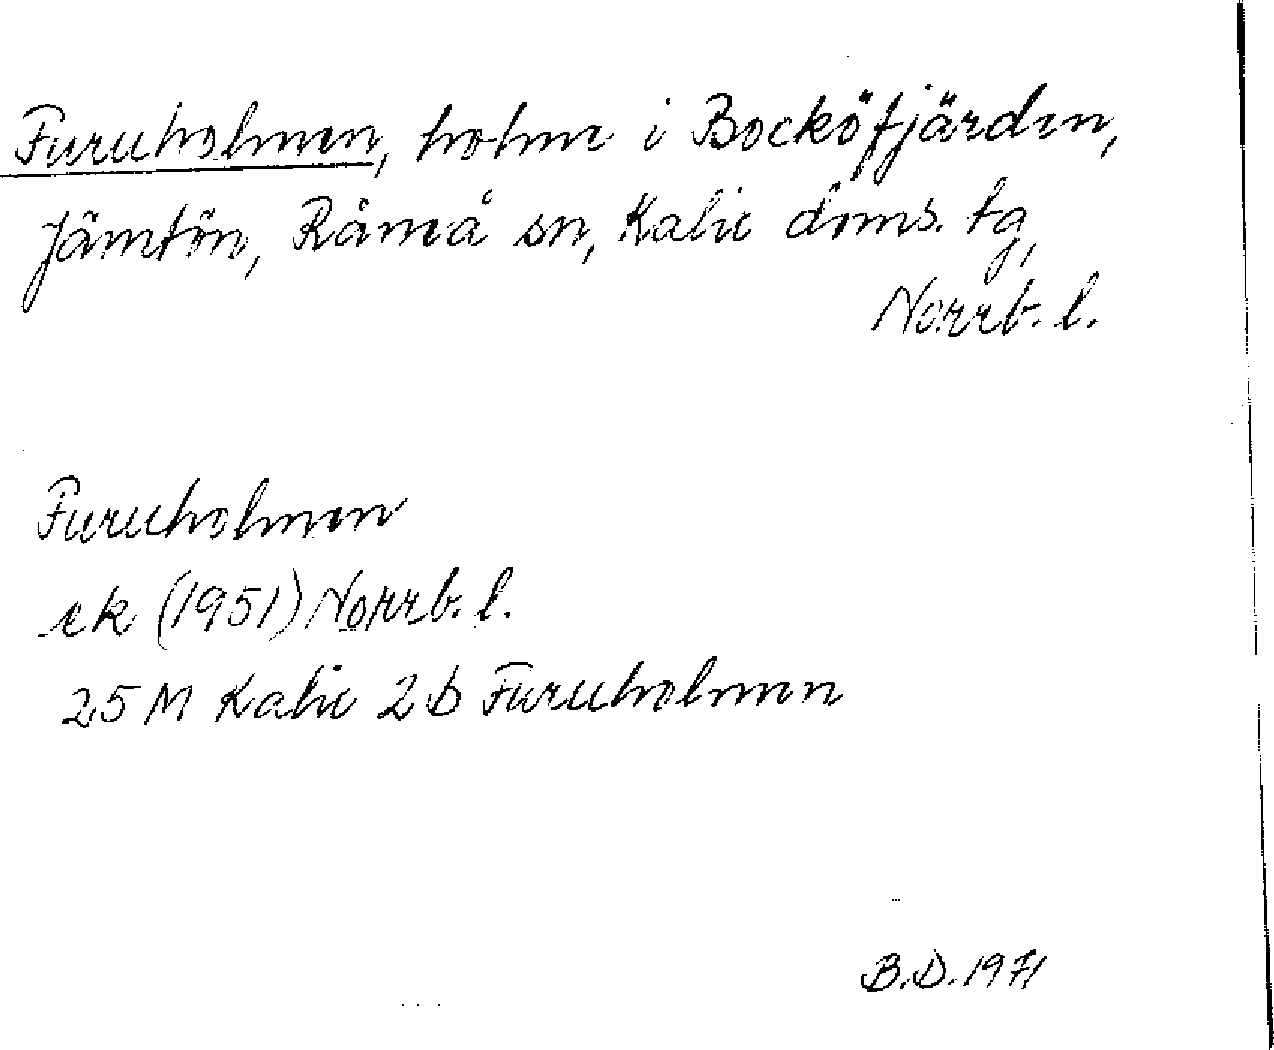 Furuholmen, holme i Bocköfjärden,
Jämtön, Råneå sn, Kalix doms. tg,
Norrb. l.
Furuholmen
ek (1951) Norrb. l.
25 M Kalix 2b Furuholmen
B.D. 1971